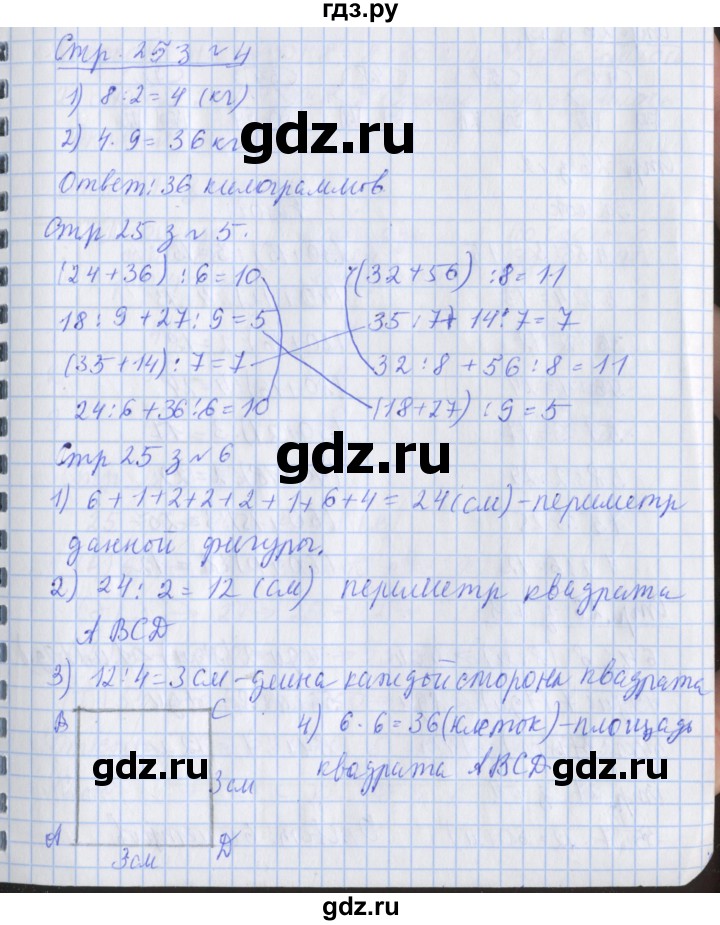 гдз.ру
Стр. 25 з № 4
1) 8 : 2 = 4 (кг)
2) 4 · 9 = 36 кг
gdz.ru
Ответ: 36 килограммов
Стр 25 з № 5.
(24+36) : 6 = 10 (32+56) : 8 = 11
18 : 9 + 27 : 9 = 5 35 : 7 + 14 : 7 = 7
(35+14) : 7 = 7 32 : 8 + 56 : 8 = 11
24 : 6 + 36 : 6 = 10 (18+27) : 9 = 5
Стр 25 з № 6
gdz.ru
1) 6+1+2+2+2+1+6+4 = 24 (см) - периметр
данной фигуры.
2) 24 : 2 = 12 (см) периметр квадрата
ABCD
3) 12 : 4 = 3 см - длина каждой стороны квадрата
B C 4) 6 · 6 = 36 (клеток) - площадь
квадрата ABCD
gdz.ru
3 см
gdz.ru
A D
3 см
gdz.ru